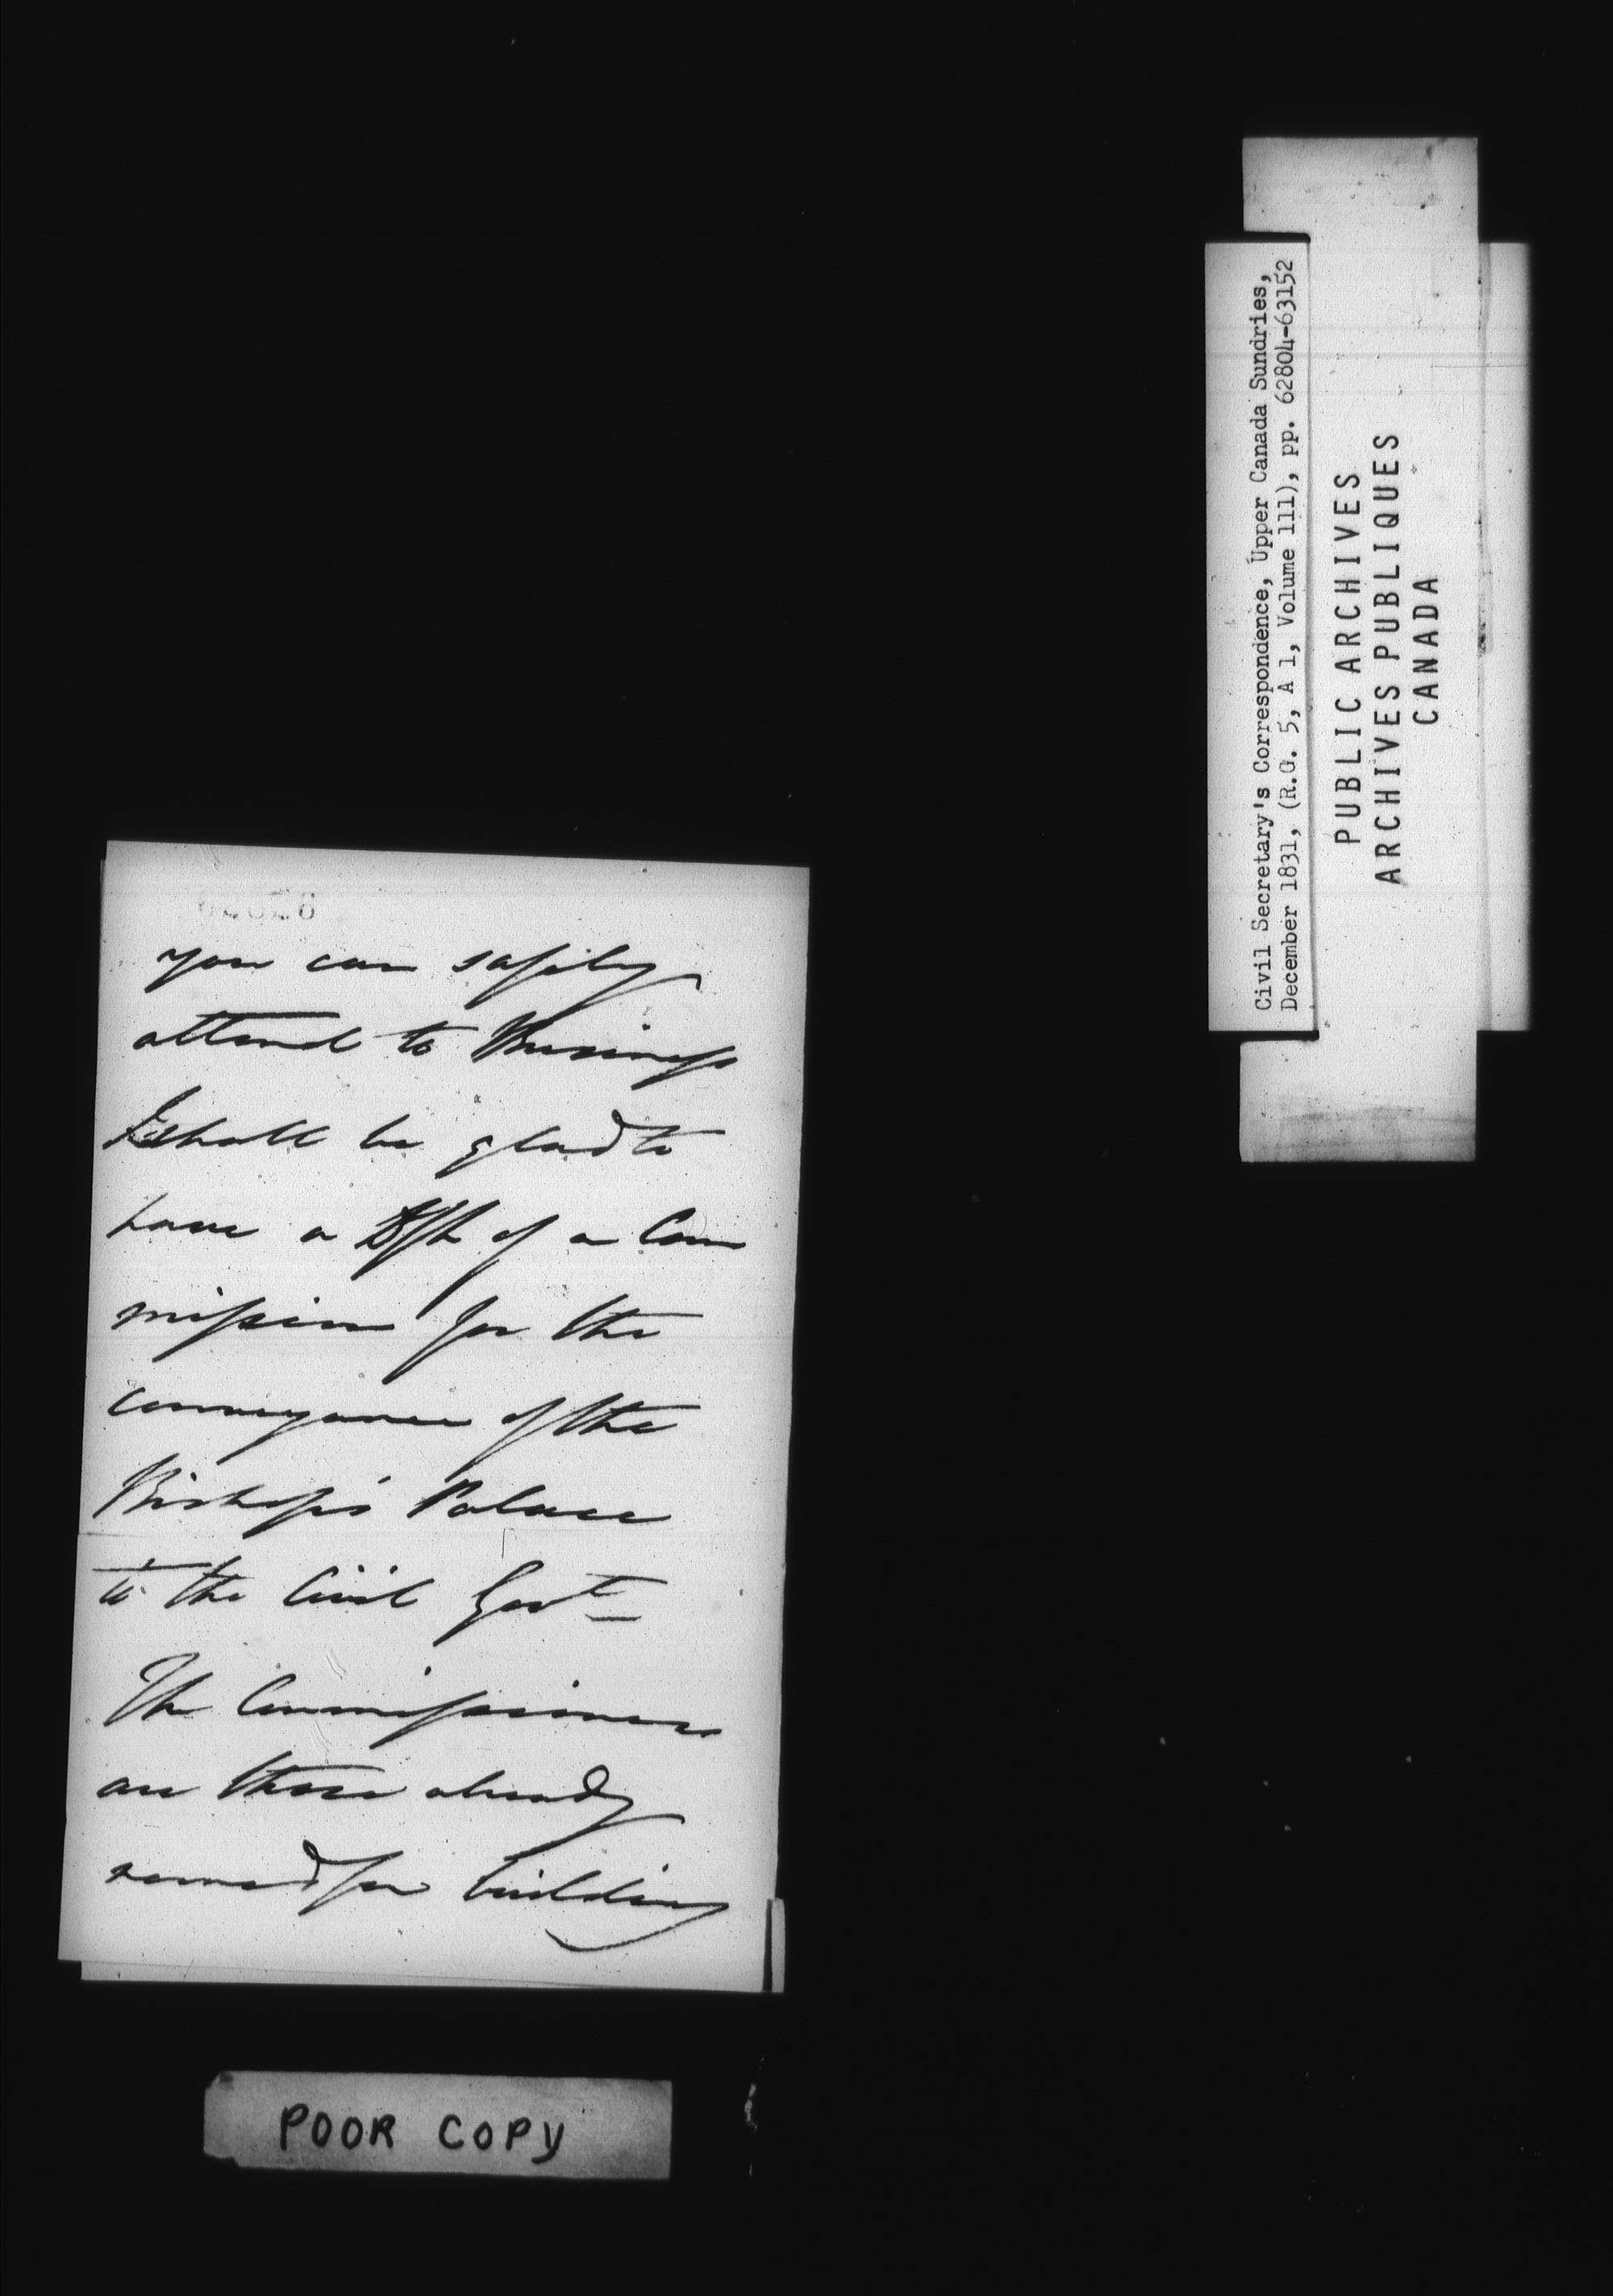 you can safely
attend to Business
I shall be glad to
have a Dft of a Com
mission for the
conveyance of the
Bishop's Palace
to the Civil Govt
The Commissioners
are those already
named for building
POOR COPY
Civil Secretary's Correspondence, Upper Canada Sundries,
December 1831, (R.G. 5, A 1, Volume 111), pp. 62804-63152
PUBLIC ARCHIVES
ARCHIVES PUBLIQUES
CANADA